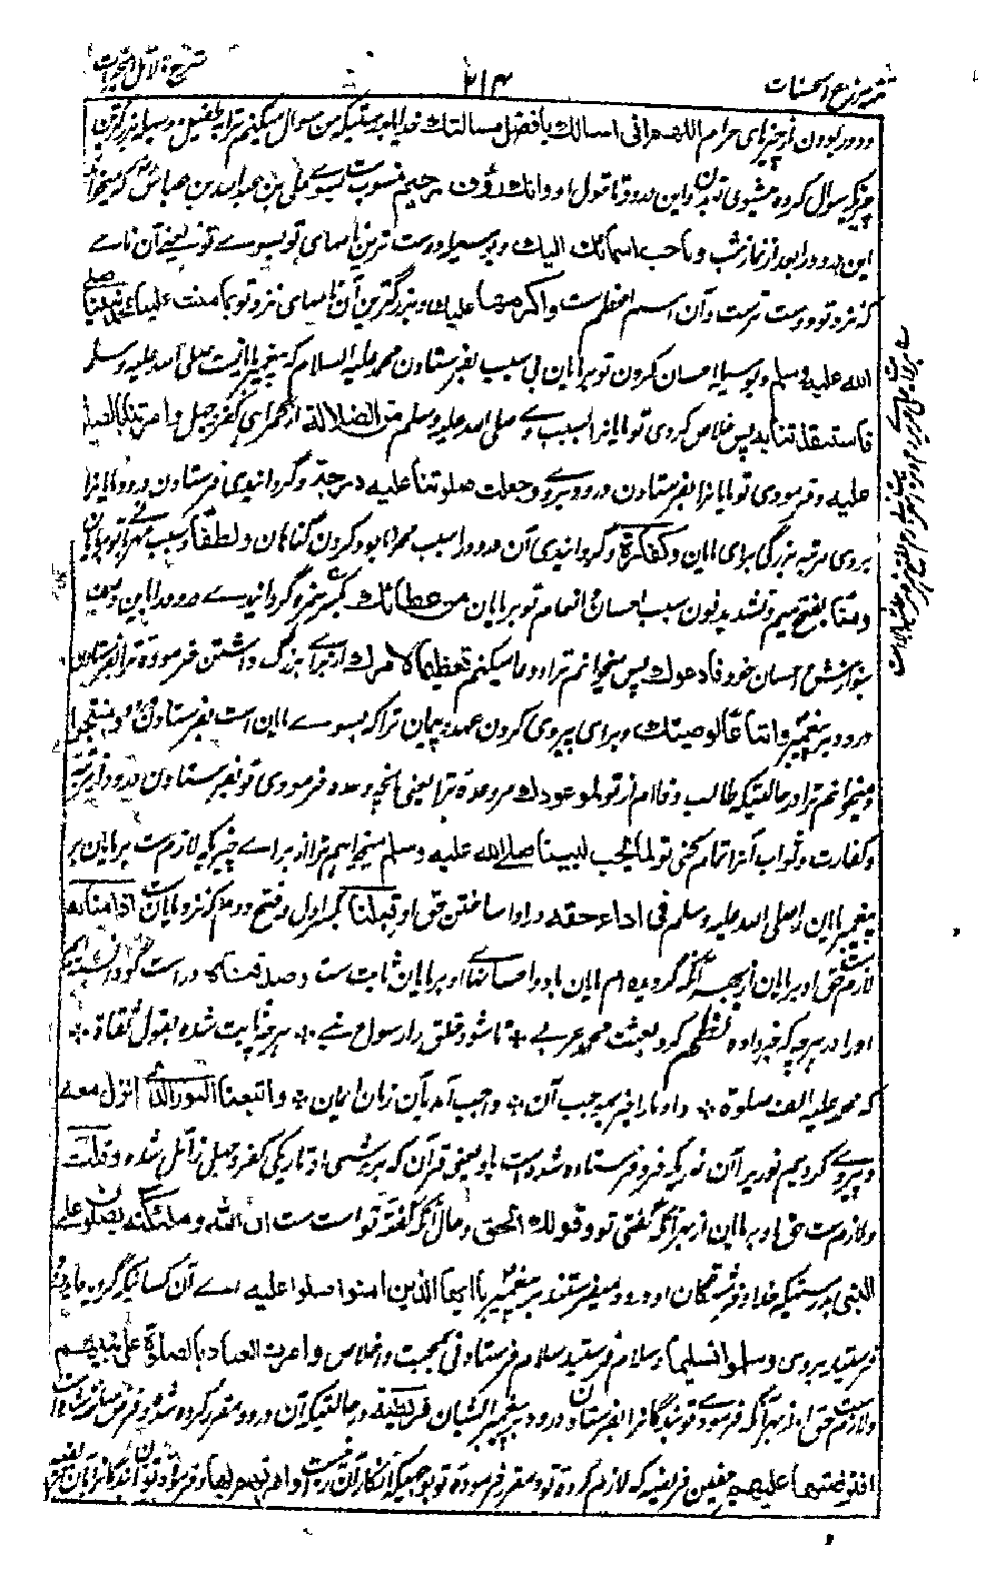 شرح دلائل الخیرات
۲۱۴
مزرع الحسنات
ودور بودن از چیزهای حرام اللهم انی اسالك بافضل مسالتك خدایا بدرستیکه من سوال میکنم ترا بطفیل وسیله بزرگترین
چیزیکه سوال کرده میشوی تو بدان و این درود تا قول او وانك رؤف رحیم منسوب ست بسوی علی بن عبدالله بن عباس که میخواند
این درود را بعد از نماز شب و باحب اسمائك الیك و بوسیله دوست ترین نامهای تو بسوے تو یعنے آن نامے
که نزد تو دوست ترست و آن اسم اعظم ست واکرمها علیك و بزرگترین آن نامهای نزد تو بما مننت علینا بمحمد نبینا صلی
الله علیه وسلم و بوسیله احسان کردن تو بر مایان بی سبب بفرستادن محمد علیه السلام که پیغمبر مایانست صلی الله علیه وسلم
فاستنقذتنا به پس خلاص کردی تو مایانرا بسبب وے صلی الله علیه وسلم من الضلالة از گمراهی کفر و جهل وامرتنا بالصلوة
علیه و فرمودی تو مایانرا بفرستادن درود بروے وجعلت صلوتنا علیه درجة و گردانیدی فرستادن درود مایانرا
بروی مرتبه بزرگی برای مایان وکفارة و گردانیدی آن درود را سبب محو نابود کردن گناهان ولطفا و سبب مهربانی تو بر مایان
ومنا بفتح میم و تشدید نون سبب احسان و انعام تو بر مایان من عطائك گردانیدے درود را این وصف
بنوازش و احسان خود فادعوك پس میخوانم ترا و دعا میکنم تعظیما لامرك از برای بزرگ داشتن فرموده ترا بفرستادن
درود بر پیغمبر واتباعا لوصیتك و برای پیروی کردن عهد و پیمان ترا که بسوے مایان است بفرستادن درود ومنتجزا
و میخوانم ترا در حالتیکه طالب وفاام از تو لموعودك مر وعده ترا یعنی انچه وعده فرمودی تو بفرستادن درود از مرتبه
و کفارت و ثواب آنرا تمام کنی تو لما یجب لنبینا صلے الله علیه وسلم میخواهم ترا از براے چیزیکه لازم ست بر مایان بر
پیغمبر مایان صلی الله علیه وسلم فی اداء حقه در ادا ساختن حق او قبلنا بکسر اول و فتح دوم که نزد مایان ست اذ امنا به
لازم ست حق او بر مایان از بهر آنکه گرویده ام مایان باو و احسانهاے او بر مایان ثابت ست وصدقناه و راست گو دانسته ایم
اورا در هرچه که خبر داده نظم کرد بعثت محمد عربے * تا شود خلق را رسول و نبے * هرچه ثابت شده بقول ثقات *
که محمد علیه الف صلوة * داد ما را خبر بموجب آن * واجب آمد بآن زمان ایمان * واتبعنا النور الذی انزل معه
و پیروے کردیم نوریرا آن نوریکه فرو فرستاده شده ست باو یعنی قرآن که بروشنی او تاریکی کفر و جهل زائل شده وقلت
و لازم ست حق او بر مایان از بهر آنکه گفتی تو وقولك الحق و حال آنکه گفته تو راست ست ان الله وملئکته یصلون علی
النبی بدرستیکه خدا و فرشتگان او درود میفرستند بر پیغمبر یاایها الذین امنوا صلوا علیه اے آن کسانیکه گرویده‌اید درود
فرستید بروی وسلموا تسلیما و سلام فرستید سلام فرستادنی بمحبت و اخلاص وامرت العباد بالصلوة علی نبیهم
و لازم ست حق او از بهر آنکه فرمودے تو بندگانرا بفرستادن درود بر پیغمبر ایشان فریضة در حالتیکه آن درود مقرر کرده شده و فرض
افترضتها علیهم چنین فریضه که لازم کرده تو و مقرر فرموده تو